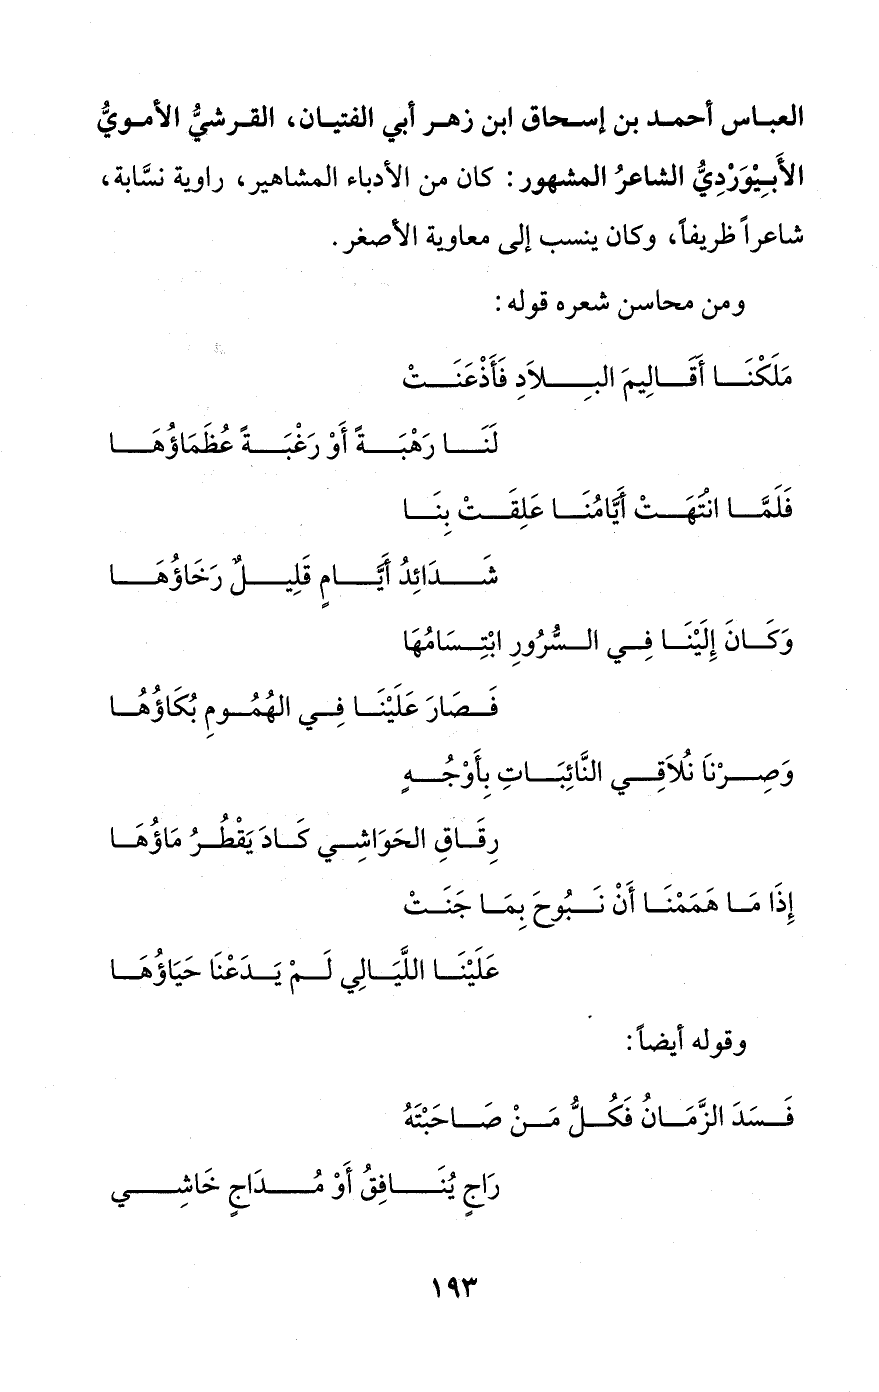 العباس أحمد بن إسحاق ابن زهر أبي الفتيان، القرشيُّ الأمويُّ
الأَبِيْوَرْدِيُّ الشاعرُ المشهور: كان من الأدباء المشاهير، راوية نسَّابة،
شاعراً ظريفاً، وكان ينسب إلى معاوية الأصغر.
ومن محاسن شعره قوله:
مَلَكْنَا أَقَالِيمَ البِلاَدِ فَأَذْعَنَتْ
لَنَا رَهْبَةً أَوْ رَغْبَةً عُظَمَاؤُهَا
فَلَمَّا انْتُهَتْ أَيَّامُنَا عَلِقَتْ بِنَا
شَدَائِدُ أَيَّامٍ قَلِيلٌ رَخَاؤُهَا
وَكَانَ إِلَيْنَا فِي السُّرُورِ ابْتِسَامُهَا
فَصَارَ عَلَيْنَا فِي الهُمُومِ بُكَاؤُهُا
وَصِرْنَا نُلاَقِي النَّائِبَاتِ بِأَوْجُهٍ
رِقَاقِ الحَوَاشِي كَادَ يَقْطُرُ مَاؤُهَا
إِذَا مَا هَمَمْنَا أَنْ نَبُوحَ بِمَا جَنَتْ
عَلَيْنَا اللَّيَالِي لَمْ يَدَعْنَا حَيَاؤُهَا
وقوله أيضاً:
فَسَدَ الزَّمَانُ فَكُلُّ مَنْ صَاحَبْتَهُ
رَاجٍ يُنَافِقُ أَوْ مُدَاجٍ خَاشِي
١٩٣